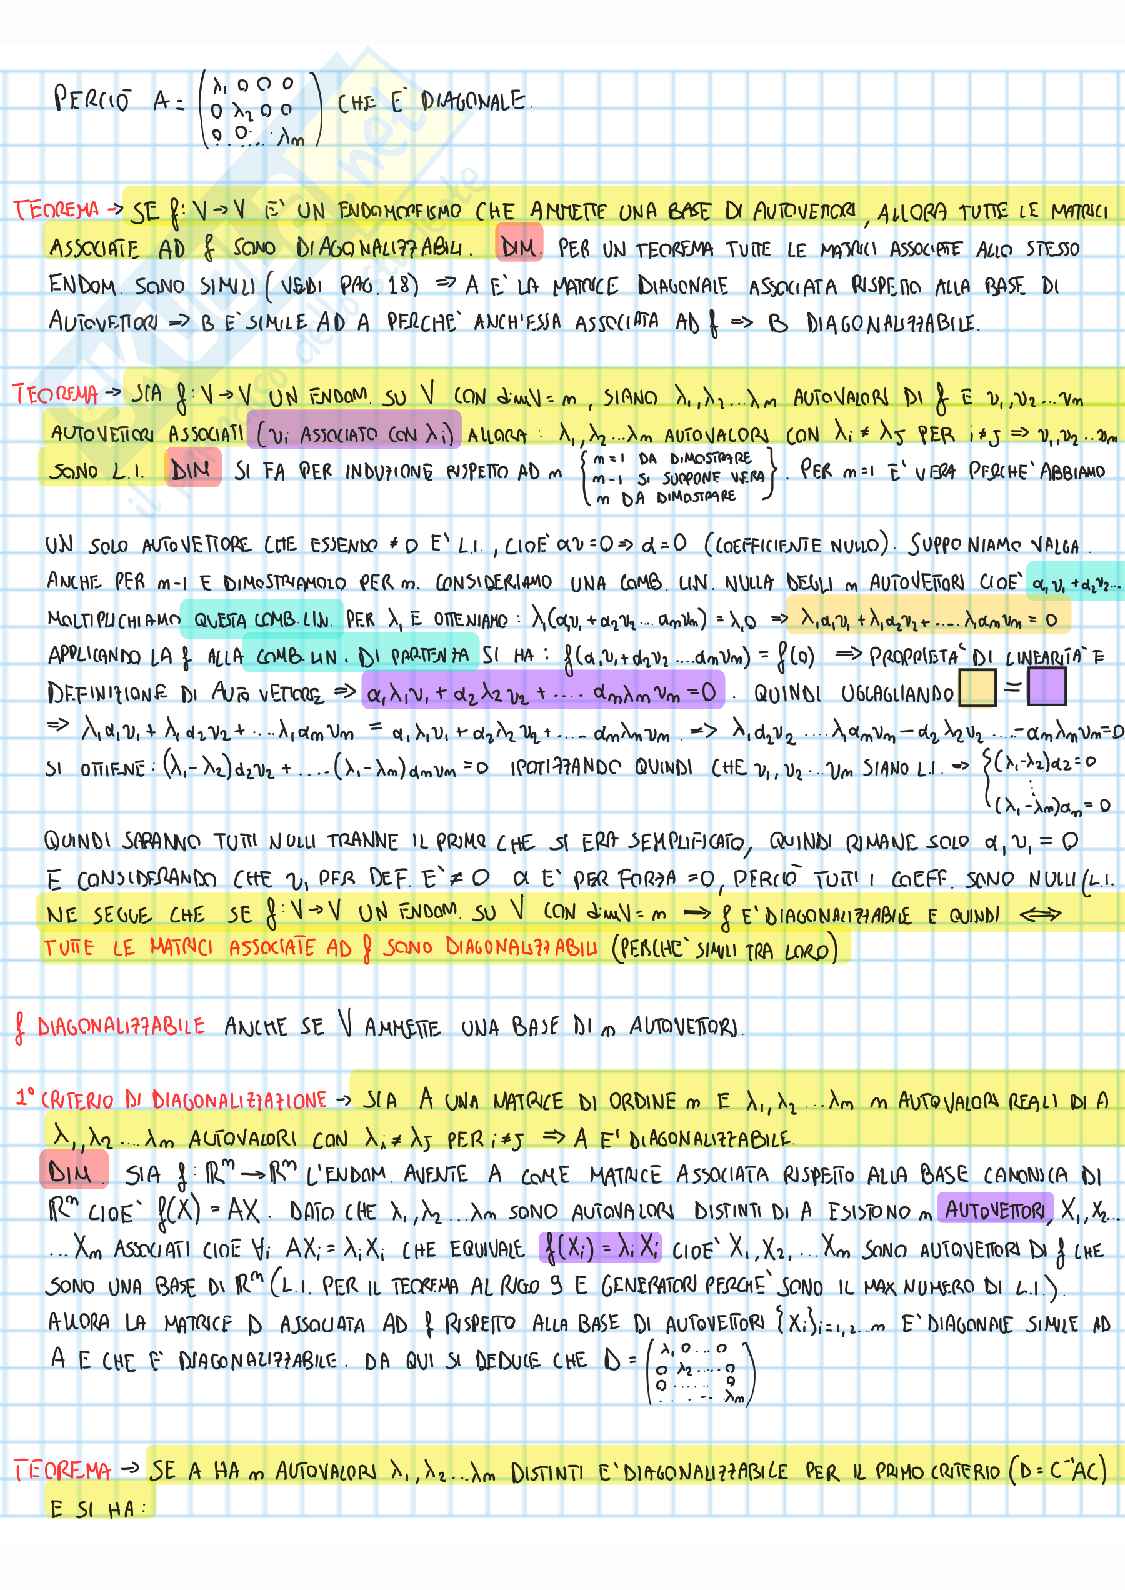 PERCIÒ A = (λ₁ 0 0 0
0 λ₂ 0 0
0 0 ... λm) CHE E' DIAGONALE.
TEOREMA → SE f: V → V E' UN ENDOMORFISMO CHE AMMETTE UNA BASE DI AUTOVETTORI, ALLORA TUTTE LE MATRICI
ASSOCIATE AD f SONO DIAGONALIZZABILI. DIM. PER UN TEOREMA TUTTE LE MATRICI ASSOCIATE ALLO STESSO
ENDOM. SONO SIMILI (VEDI PAG. 18) ⇒ A E' LA MATRICE DIAGONALE ASSOCIATA RISPETTO ALLA BASE DI
AUTOVETTORI ⇒ B E' SIMILE AD A PERCHE' ANCH'ESSA ASSOCIATA AD f ⇒ B DIAGONALIZZABILE.
TEOREMA → SIA f: V → V UN ENDOM. SU V CON dimV = m, SIANO λ₁, λ₂ ... λm AUTOVALORI DI f E v₁, v₂ ... vm
AUTOVETTORI ASSOCIATI (vi ASSOCIATO CON λi) ALLORA: λ₁, λ₂ ... λm AUTOVALORI CON λi ≠ λJ PER i ≠ J ⇒ v₁, v₂ ... vm
SONO L.I. DIM SI FA PER INDUZIONE RISPETTO AD m { m=1 DA DIMOSTRARE
m-1 SI SUPPONE VERA
m DA DIMOSTRARE }. PER m=1 E' VERA PERCHE' ABBIAMO
UN SOLO AUTOVETTORE CHE ESSENDO ≠ 0 E' L.I., CIOE' αv = 0 ⇒ α = 0 (COEFFICIENTE NULLO). SUPPONIAMO VALGA
ANCHE PER m-1 E DIMOSTRIAMOLO PER m. CONSIDERIAMO UNA COMB. LIN. NULLA DEGLI m AUTOVETTORI CIOE' α₁v₁ + α₂v₂...
MOLTIPLICHIAMO QUESTA COMB. LIN. PER λ₁ E OTTENIAMO: λ₁(α₁v₁ + α₂v₂ ... αmvm) = λ₁0 ⇒ λ₁α₁v₁ + λ₁α₂v₂ + .... λ₁αmvm = 0
APPLICANDO LA f ALLA COMB. LIN. DI PARTENZA SI HA: f(α₁v₁ + α₂v₂ .... αmvm) = f(0) ⇒ PROPRIETA' DI LINEARITA' E
DEFINIZIONE DI AUTOVETTORE ⇒ α₁λ₁v₁ + α₂λ₂v₂ + .... αmλmvm = 0. QUINDI UGUAGLIANDO =
⇒ λ₁α₁v₁ + λ₁α₂v₂ + .... λ₁αmvm = α₁λ₁v₁ + α₂λ₂v₂ + .... αmλmvm ⇒ λ₁α₂v₂ .... λ₁αmvm - α₂λ₂v₂ .... - αmλmvm = 0
SI OTTIENE: (λ₁-λ₂)α₂v₂ + .... (λ₁-λm)αmvm = 0 IPOTIZZANDO QUINDI CHE v₁, v₂ ... vm SIANO L.I. ⇒ { (λ₁-λ₂)α₂ = 0
⋮
(λ₁-λm)αm = 0
QUINDI SARANNO TUTTI NULLI TRANNE IL PRIMO CHE SI ERA SEMPLIFICATO, QUINDI RIMANE SOLO α₁v₁ = 0
E CONSIDERANDO CHE v₁ PER DEF. E' ≠ 0 α E' PER FORZA = 0, PERCIÒ TUTTI I COEFF. SONO NULLI (L.I.
NE SEGUE CHE SE f: V → V UN ENDOM. SU V CON dimV = m → f E' DIAGONALIZZABILE E QUINDI ⇔
TUTTE LE MATRICI ASSOCIATE AD f SONO DIAGONALIZZABILI (PERCHE' SIMILI TRA LORO)
f DIAGONALIZZABILE ANCHE SE V AMMETTE UNA BASE DI m AUTOVETTORI.
1° CRITERIO DI DIAGONALIZZAZIONE → SIA A UNA MATRICE DI ORDINE m E λ₁, λ₂ ... λm m AUTOVALORI REALI DI A
λ₁, λ₂ .... λm AUTOVALORI CON λi ≠ λJ PER i ≠ J ⇒ A E' DIAGONALIZZABILE.
DIM. SIA f: ℝᵐ → ℝᵐ L'ENDOM. AVENTE A COME MATRICE ASSOCIATA RISPETTO ALLA BASE CANONICA DI
ℝᵐ CIOE' f(X) = AX. DATO CHE λ₁, λ₂ ... λm SONO AUTOVALORI DISTINTI DI A ESISTONO m AUTOVETTORI, X₁, X₂...
... Xm ASSOCIATI CIOE' ∀i AXi = λiXi CHE EQUIVALE f(Xi) = λiXi CIOE' X₁, X₂, ... Xm SONO AUTOVETTORI DI f CHE
SONO UNA BASE DI ℝᵐ (L.I. PER IL TEOREMA AL RIGO 9 E GENERATORI PERCHE' SONO IL MAX NUMERO DI L.I.).
ALLORA LA MATRICE D ASSOCIATA AD f RISPETTO ALLA BASE DI AUTOVETTORI {Xi}i=1,2...m E' DIAGONALE SIMILE AD
A E CHE E' DIAGONALIZZABILE. DA QUI SI DEDUCE CHE D = (λ₁ 0 ... 0
0 λ₂ .... 0
0 ...... 0
. . -- λm)
TEOREMA → SE A HA m AUTOVALORI λ₁, λ₂ ... λm DISTINTI E' DIAGONALIZZABILE PER IL PRIMO CRITERIO (D = C⁻¹AC)
E SI HA: